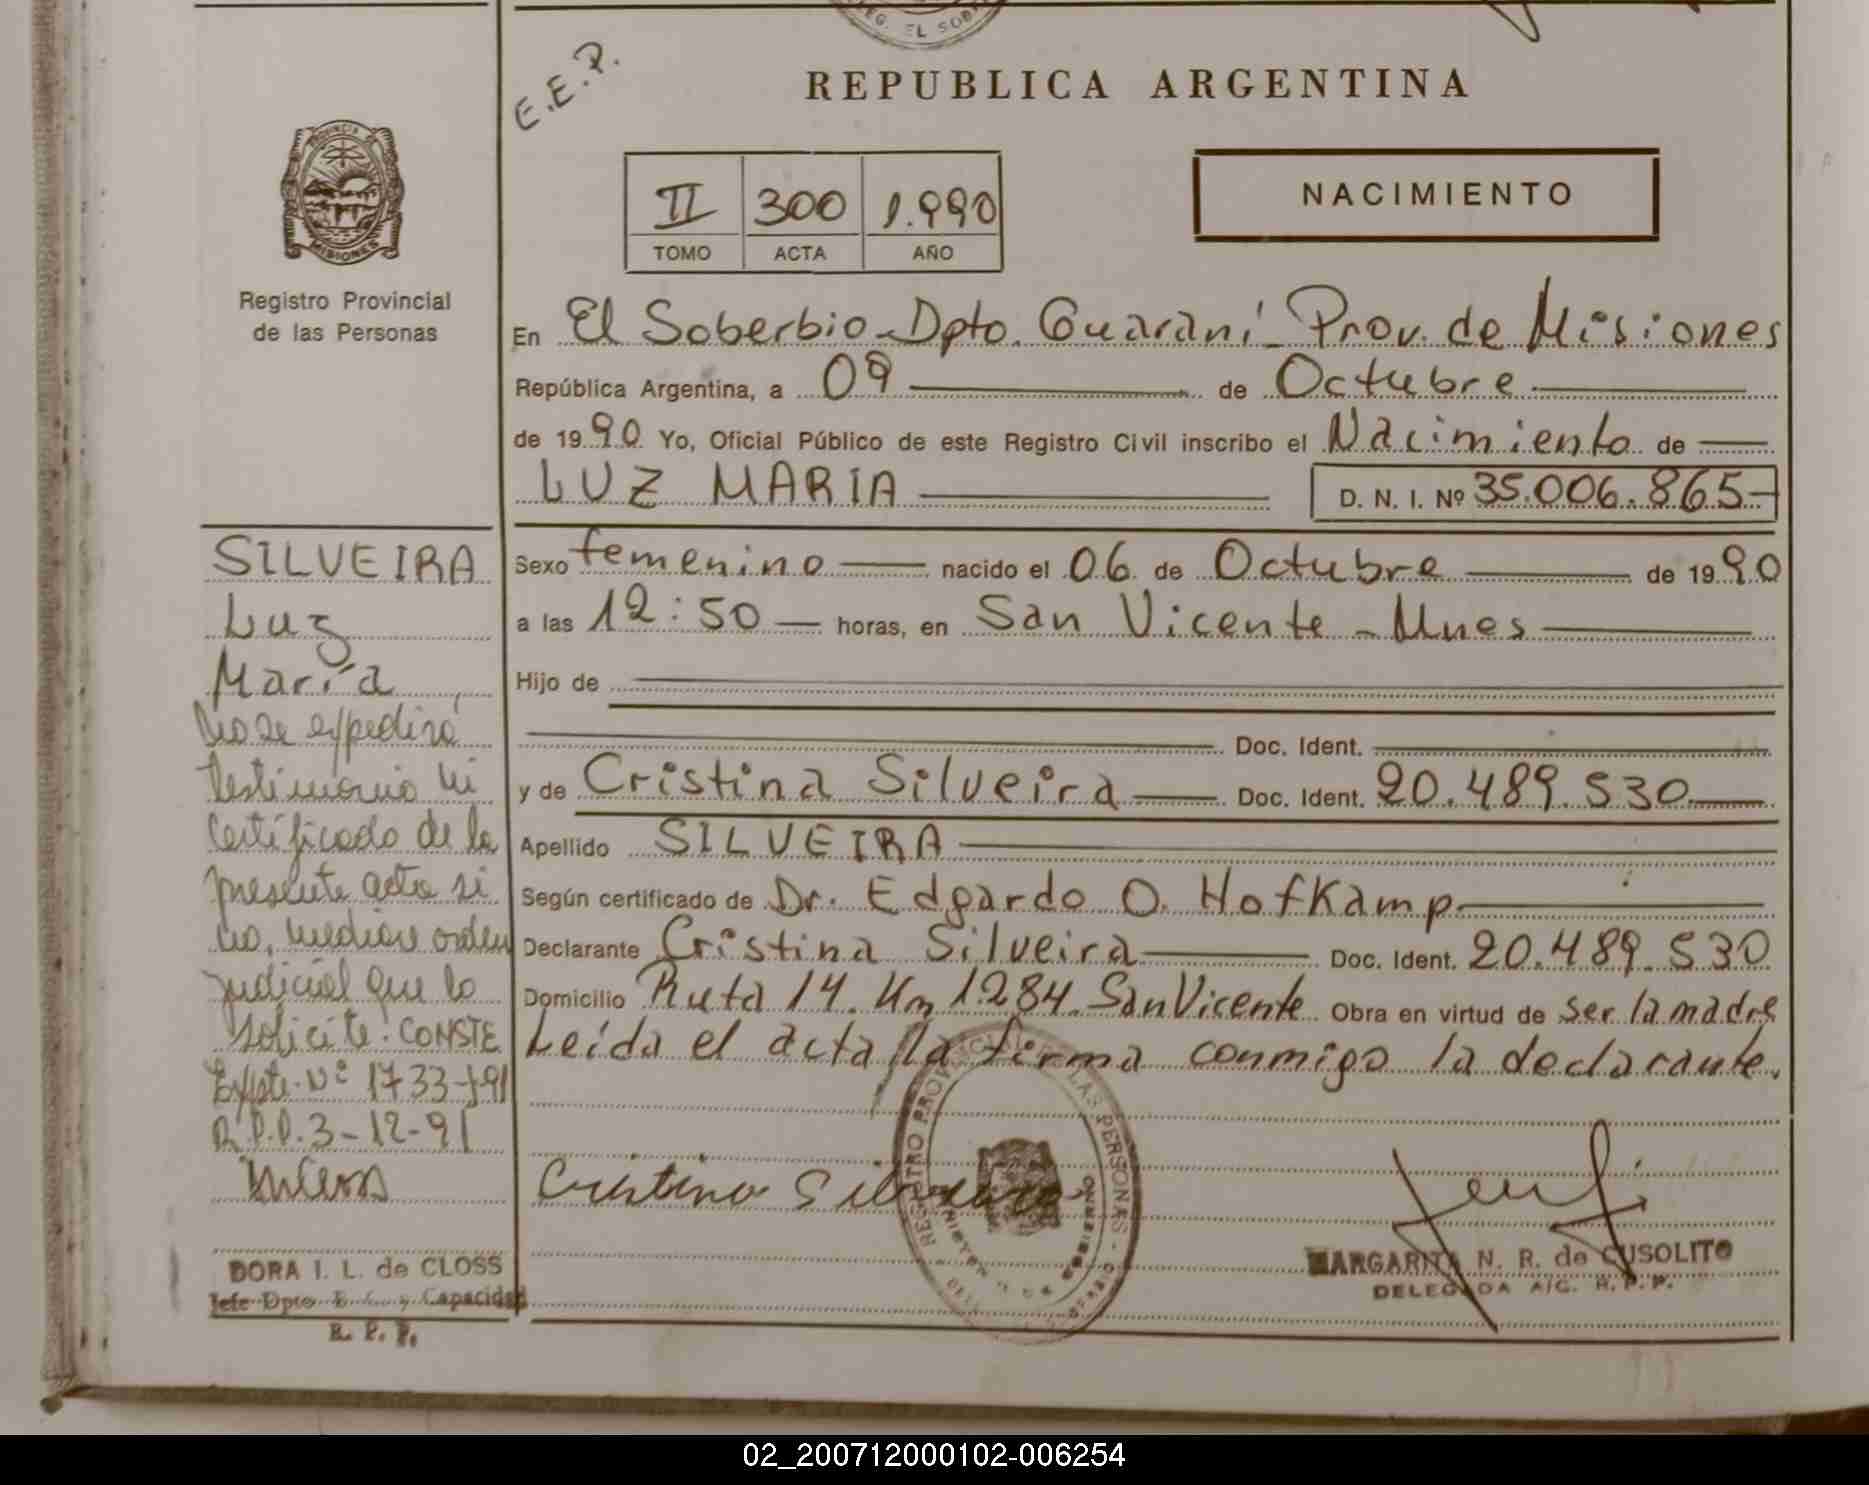 DELEG. EL SOBE
E.E.P.
REPUBLICA ARGENTINA
PROVINCIA DE
MISIONES
II 300 1.990
TOMO ACTA AÑO
NACIMIENTO
Registro Provincial
de las Personas
En El Soberbio-Dpto. Guaraní-Prov. de Misiones
República Argentina, a 09 de Octubre
de 1990 Yo, Oficial Público de este Registro Civil inscribo el Nacimiento de
LUZ MARIA D. N. I. Nº 35.006.865-
Sexo femenino nacido el 06 de Octubre de 1990
a las 12:50 horas, en San Vicente - Mnes
Hijo de
Doc. Ident.
y de Cristina Silveira Doc. Ident. 20.489.530
Apellido SILVEIRA
Según certificado de Dr. Edgardo O. Hofkamp
Declarante Cristina Silveira Doc. Ident. 20.489.530
Domicilio Ruta 14. Km 1.284. San Vicente Obra en virtud de ser la madre
Leída el acta la firma conmigo la declarante.
Cristina Silveira
REGISTRO PROVINCIAL DE LAS PERSONAS
MARGARITA N. R. de CUSOLITO
DELEGADA A/C. R. P. P.
SILVEIRA
Luz
María
No se expedirá
testimonio ni
certificado de la
presente acta si
no, mediare orden
judicial que lo
solicite. CONSTE
Expte. Nº 1733-91
R.P.P. 3-12-91
DORA I. L. de CLOSS
Jefe Dpto. E. C. y Capacidad
R. P. P.
02_200712000102-006254